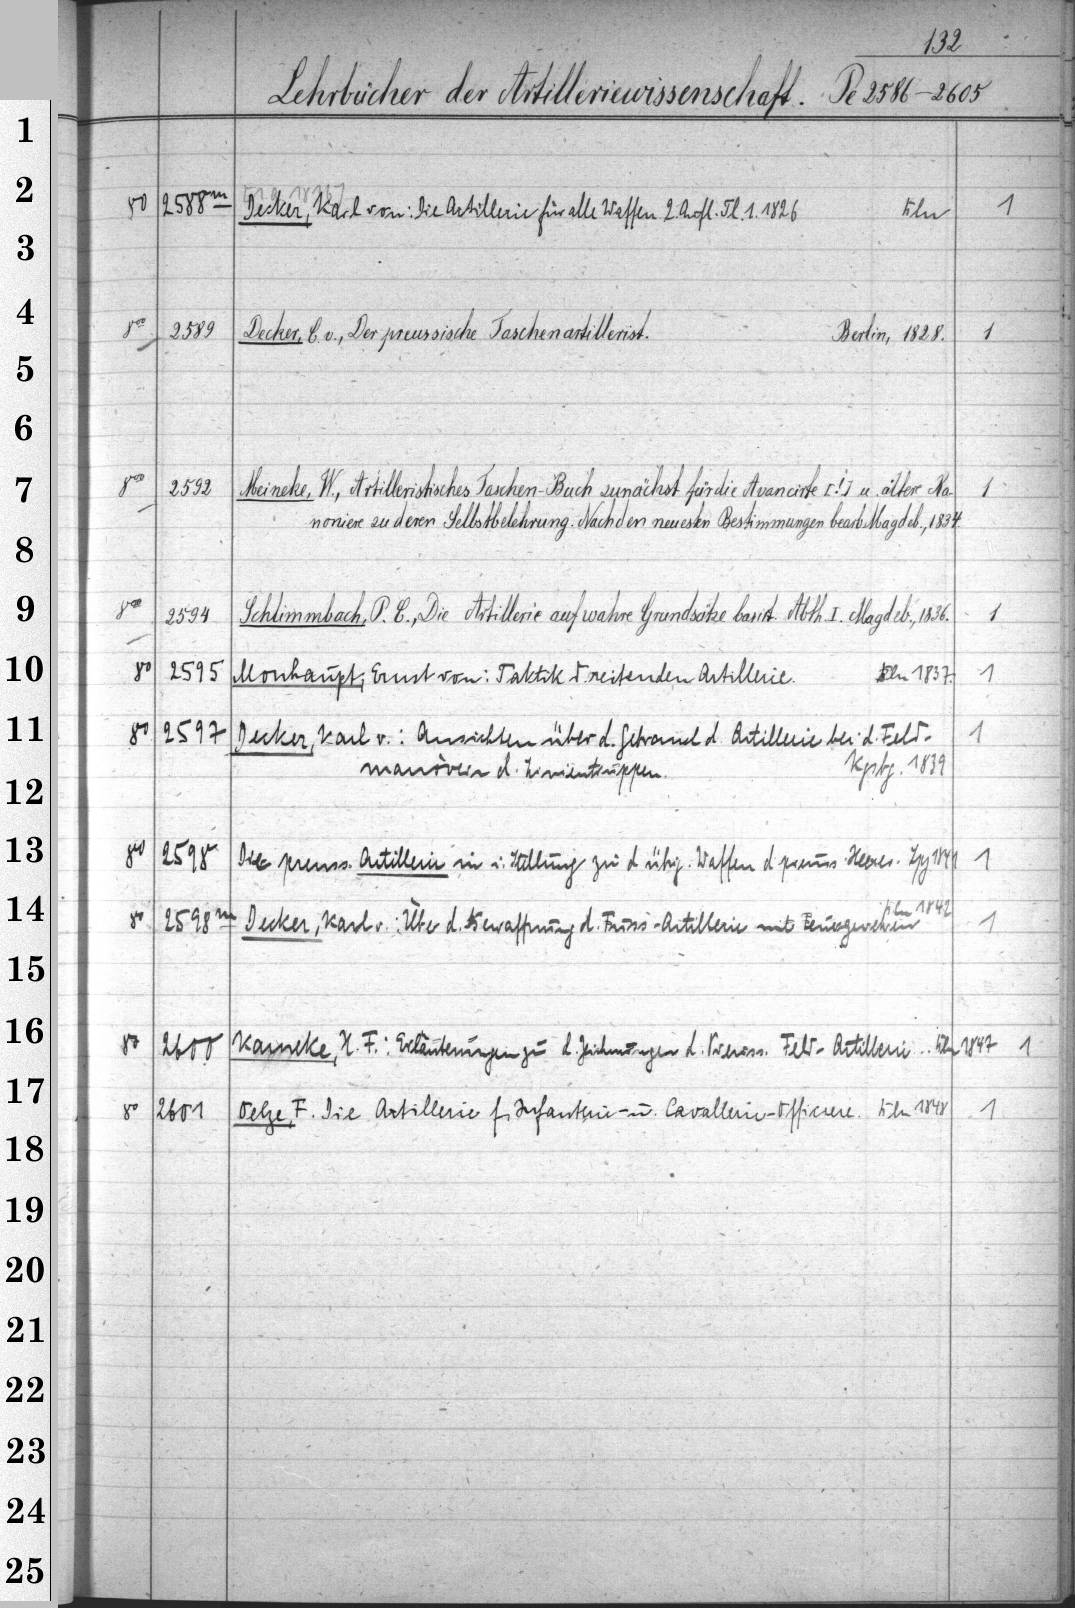 132
Lehrbücher der Artilleriewissenschaft. Pe 2586-2605
1
2
8° 2588m Decker, Karl von: Die Artillerie für alle Waffen 2. Aufl. Tl. 1. 1826 Bln 1
3
4
8° 2589 Decker, C. v., Der preussische Taschenartillerist. Berlin, 1828. 1
5
6
7
8° 2592 Meineke, W., Artilleristisches Taschen-Buch zunächst für die Avancirte [!] u. ältere Ka-
noniere zu deren Selbstbelehrung. Nach den neuesten Bestimmungen bearb. Magdeb., 1834. 1
8
9
8° 2594 Schlimmbach, P. C., Die Artillerie auf wahre Grundsätze basirt. Abth. I. Magdeb., 1836. 1
10
8° 2595 Monhaupt, Ernst von: Taktik d. reitenden Artillerie. Bln 1837. 1
11
8° 2597 Decker, Karl v.: Ansichten über d. Gebrauch d. Artillerie bei d. Feld-
manövern d. Linientruppen. Kgsbg. 1839 1
12
13
8° 2598 Die preuss. Artillerie in i. Stellung zu d. übrig. Waffen d. preuss. Heeres. Lpz 1841 1
14
8° 2598m Decker, Karl v.: Über d. Bewaffnung d. Fuss-Artillerie mit Feuergewehren Bln 1842 1
15
16
8° 2600 Kameke, H. F.: Erläuterungen zu d. Zeichnungen d. Preuss. Feld-Artillerie. Bln 1847 1
17
8° 2601 Oelze, F. Die Artillerie f. Infanterie- u. Cavallerie-Officiere. Bln 1848 1
18
19
20
21
22
23
24
25